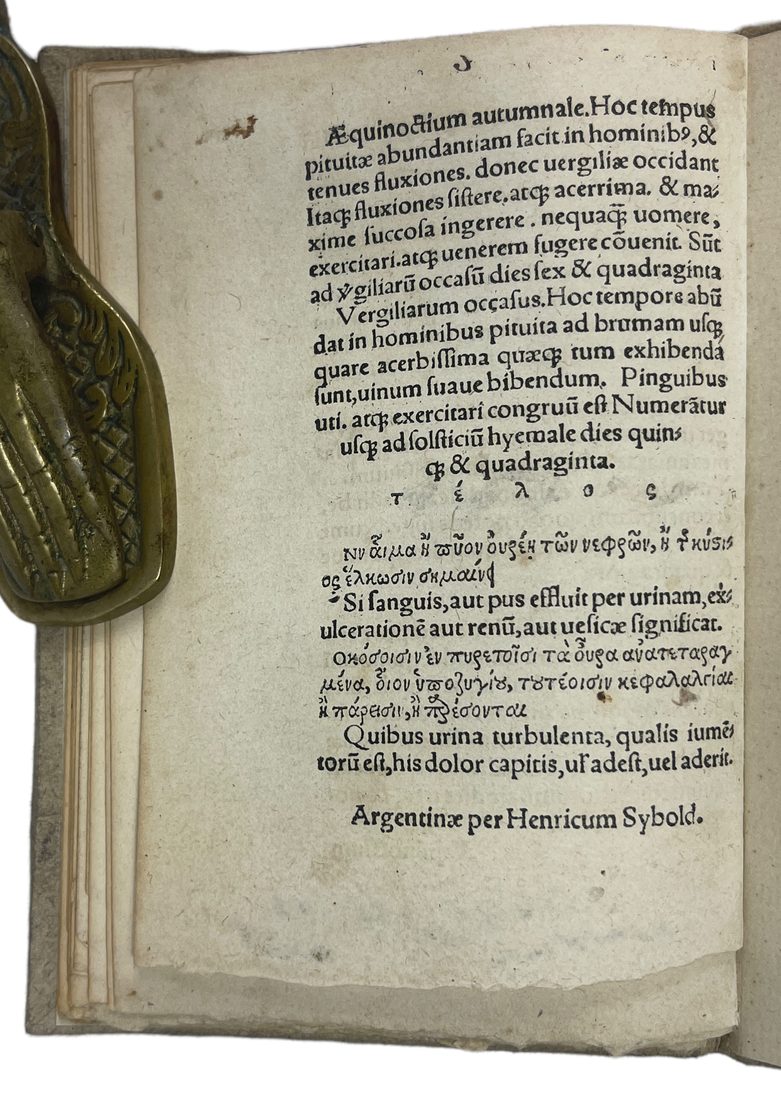 Æquinoctium autumnale. Hoc tempus
pituitæ abundantiam facit in hominibꝰ, &
tenues fluxiones. donec uergiliæ occidant
Itaqꝫ fluxiones sistere. atqꝫ acerrima. & ma-
xime succosa ingerere. nequaqꝫ̃ uomere,
exercitari. atqꝫ uenerem fugere cõuenit. Sũt
ad v̓giliarũ occasũ dies sex & quadraginta
Vergiliarum occasus. Hoc tempore abũ
dat in hominibus pituita ad brumam usqꝫ
quare acerbissima quæqꝫ tum exhibenda
sunt, uinum suaue bibendum. Pinguibus
uti. atqꝫ exercitari congruũ est Numerãtur
usqꝫ ad solsticiũ hyemale dies quin-
qꝫ & quadraginta.
τ έ λ ο ς
αἷμα ἢ πῦον τῶν νεφρῶν, ἢ
ος ἕλκωσιν
Si sanguis, aut pus effluit per urinam, ex-
ulcerationẽ aut renũ, aut uesicæ significat.
Οκόσοισιν ἐν πυρετοῖσι τὰ οὖρα ἀνατεταραγ
μένα, οἷον ὑποζυγίου, τουτέοισιν κεφαλαλγίαι
ἢ πάρεισιν, ἢ παρέσονται
Quibus urina turbulenta, qualis iumẽ-
torũ est, his dolor capitis, uł adest, uel aderit.
Argentinæ per Henricum Sybold.